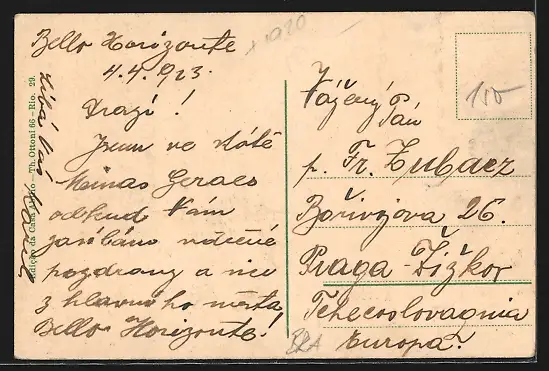 Bello Horizonte
4.4.923.
Drazí!
Jsem ve státě
Minas Geraes
odkud Vám
zasílám srdečné
pozdravy a sice
z hlavního města
Bello Horizonte!
Líbá Vás
Edição da Casa — Th. Ottoni 66 — Rio. 29.
Vážený Pán
p. Fr. Zubacz
Bořivojova 26.
Praga-Žižkov
Tchecoslovagnia
Europa.
150
1920
BRA